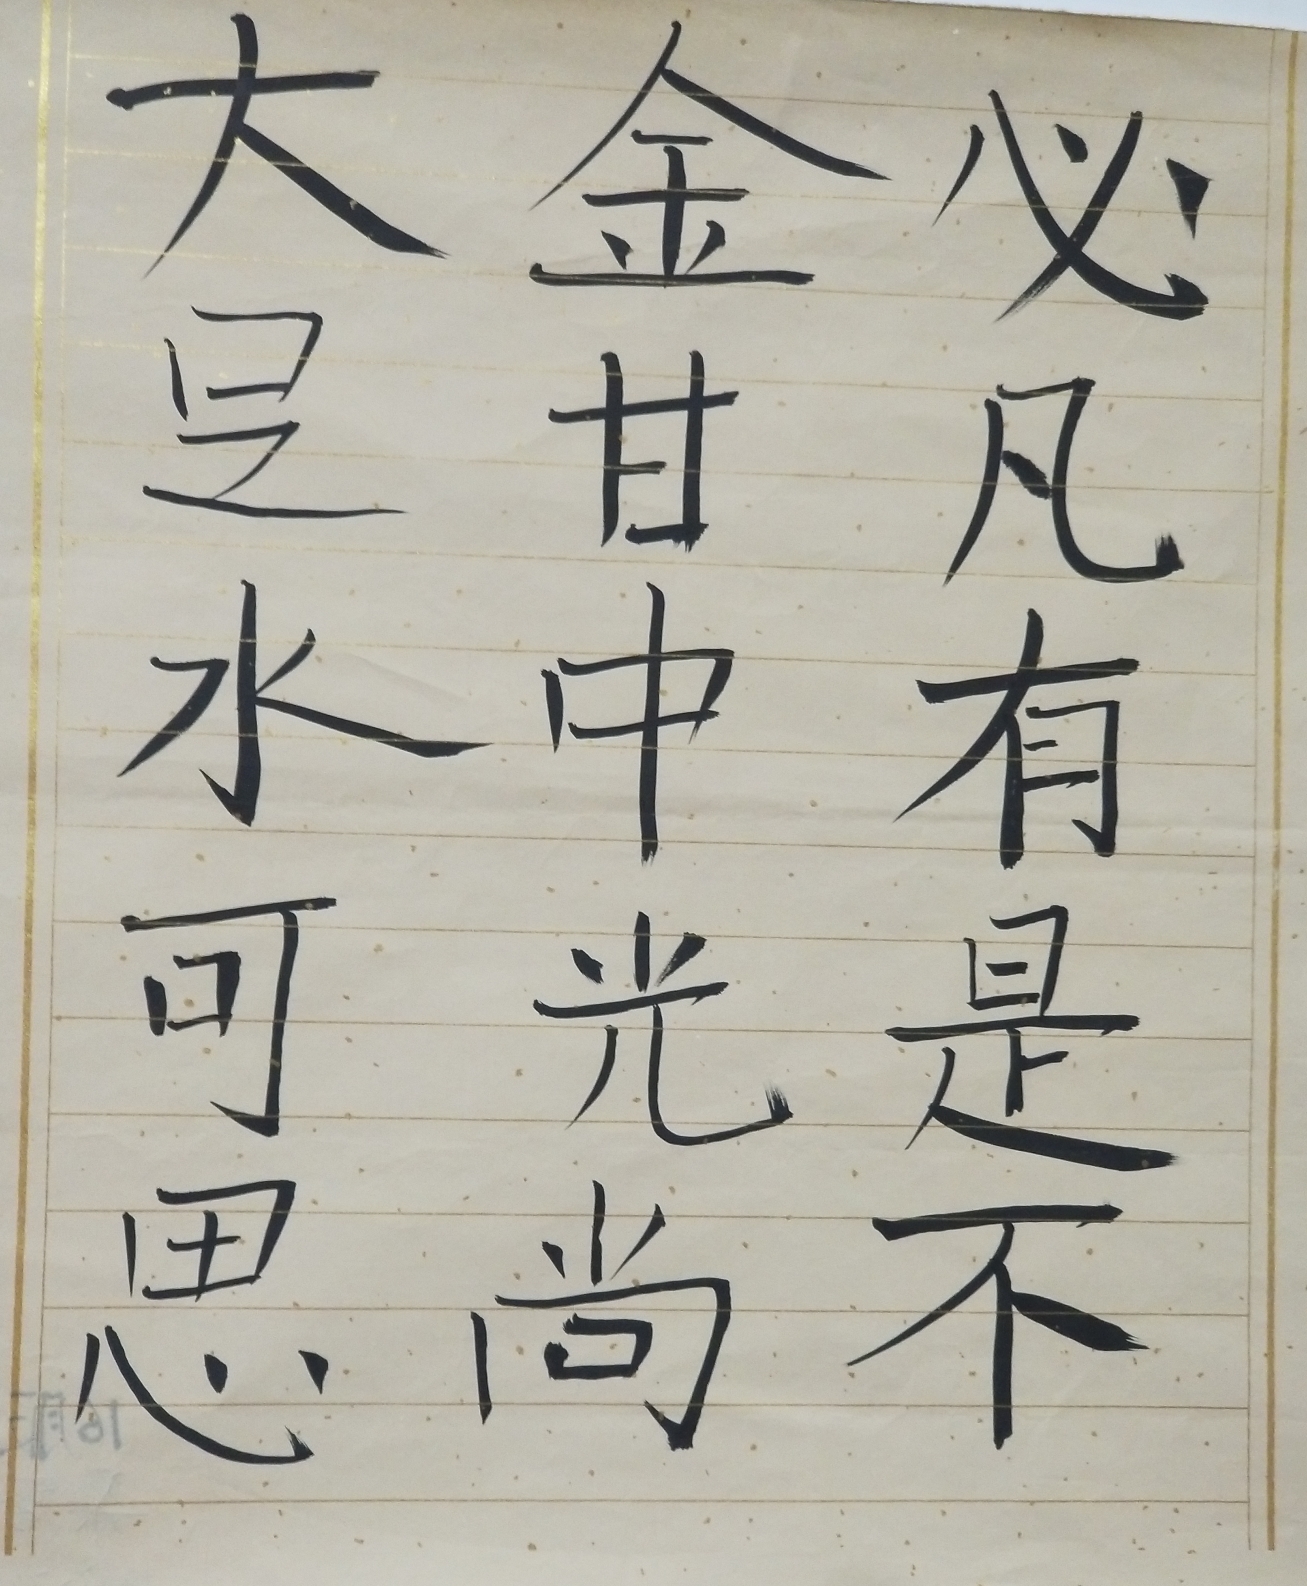 必凡有是不
金甘中光尚
大水可思